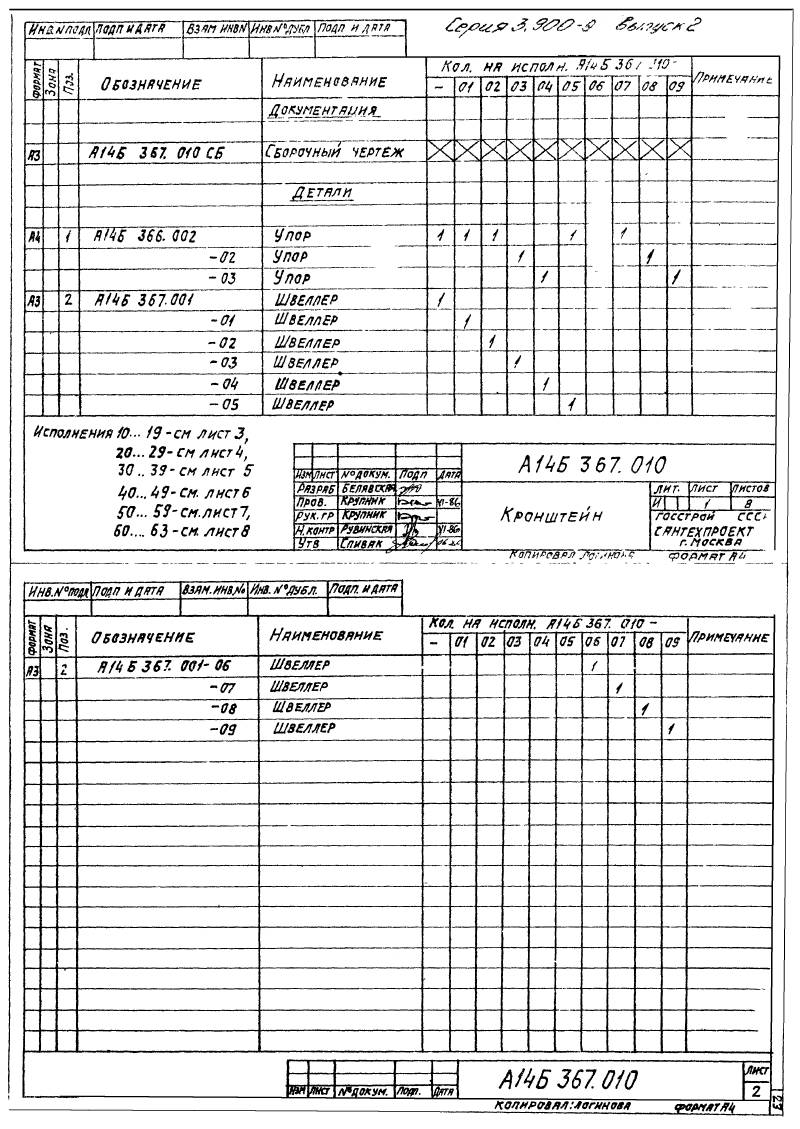 Серия 3.900-9 Выпуск 2
Инв.№подл Подп и дата Взам инв№ Инв №дубл Подп и дата
Формат Зона Поз. Обозначение Наименование Кол. на исполн. А14Б 367 010- Примечание
- 01 02 03 04 05 06 07 08 09
Документация
А3 А14Б 367.010 СБ Сборочный чертеж
Детали
А4 1 А14Б 366.002 Упор 1 1 1 1 1
-02 Упор 1 1
-03 Упор 1 1
А3 2 А14Б 367.001 Швеллер 1
-01 Швеллер 1
-02 Швеллер 1
-03 Швеллер 1
-04 Швеллер 1
-05 Швеллер 1
Исполнения 10...19-см лист 3,
20...29-см лист 4,
30..39-см лист 5
40...49-см лист 6
50...59-см.лист 7,
60...63-см лист 8
Изм Лист №докум. Подп Дата
Разраб Белявская
Пров. Крупник VI-86
Рук.гр Крупник
Н.контр Рувинская VI-86
Утв Спивак
А14Б 367.010
Кронштейн
Лит. Лист Листов
И 1 8
Госстрой СССР
Сантехпроект
г.Москва
Копировал Логинова Формат А4
Инв.№подл Подп и дата Взам.инв.№ Инв.№дубл. Подп. и дата
Формат Зона Поз. Обозначение Наименование Кол. на исполн. А14Б 367. 010- Примечание
- 01 02 03 04 05 06 07 08 09
А3 2 А14Б 367. 001-06 Швеллер 1
-07 Швеллер 1
-08 Швеллер 1
-09 Швеллер 1
Изм Лист №докум. Подп. Дата
А14Б 367.010
Лист
2
Копировал: Логинова Формат А4
23